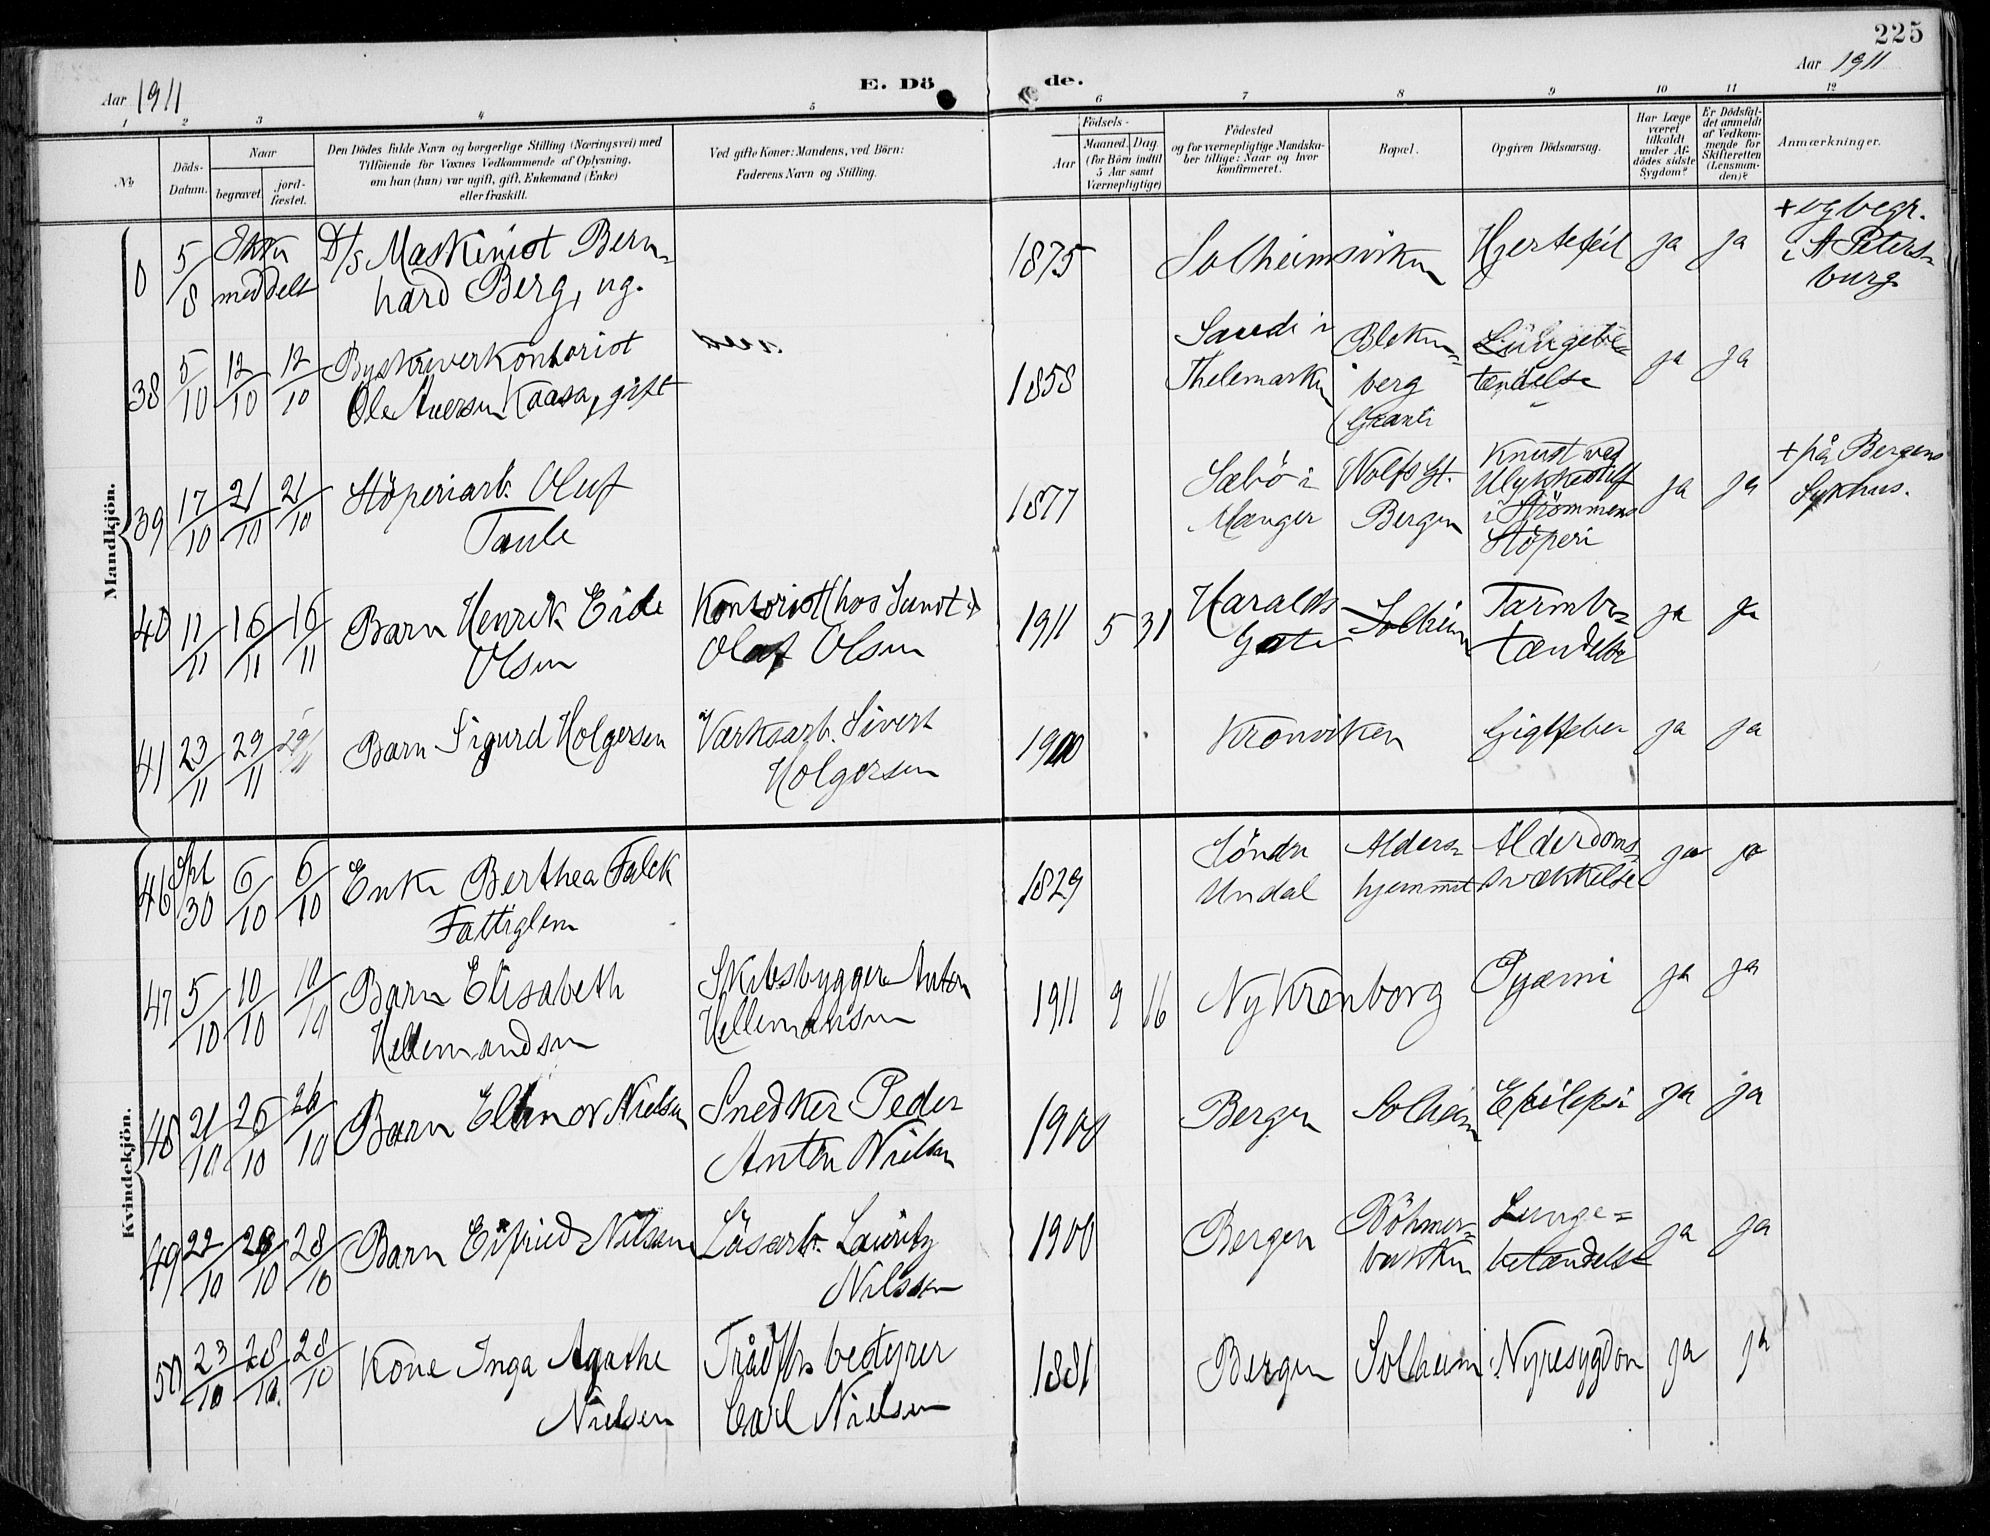 225
Aar 1911
E. Dö
de.
Aar 1911
1 2 3 4 5 6 7 8 9 10 11 12
No
Döds-
Datum.
Naar
begravet.
jord-
fæstet.
Den Dödes fulde Navn og borgerlige Stilling (Næringsvei) med
Tilföiende for Voxnes Vedkommende af Oplysning,
om han (hun) var ugift, gift, Enkemand (Enke)
eller fraskilt.
Ved gifte Koner: Mandens, ved Börn:
Faderens Navn og Stilling.
Födsels-
Aar
Maaned. Dag.
(for Börn indtil
5 Aar samt
Værnepligtige)
Födested
og for værnepligtige Mandska-
ber tillige: Naar og hvor
konfirmeret.
Bopæl.
Opgiven Dödsaarsag.
Har Læge
været
tilkaldt
under Af-
dödes sidste
Sygdom?
Er Dödsfal-
det anmeldt
af Vedkom-
mende for
Skifteretten
(Lensman-
den)?
Anmærkninger.
Mandkjön.
0 5/8 Ikke meddelt D/S Maskinist Bern-
hard Berg, ug.
1875 Solheimsviken Hjertefeil ja ja
+ og begr.
i St Peters-
burg
38 5/10 12/10 12/10 Byskriverkontorist
Ole Kaasa, gift
1858 Saude i
Thelemarken
berg
tændelse
ja ja
39 17/10 21/10 21/10 Störiarb. Oluf
Taule
1877 Sæbö i
Manger
Wolfs Gt.
Bergen
Knust ved
Ulykkestilf
i Strömmens
Stöperi
ja ja
+ på Bergens
Sykhus.
40 11/11 16/11 16/11 Barn Henrik Eide
Olsen
Kontorist (hos Sundt
Olaf Olsen
1911 5 31 Haralds
Gate
Solheim
Tarmbe-
tændelse
ja ja
41 23/11 29/11 29/11 Barn Sigurd Holgersen
Værksarb. Sivert
Holgersen
1900 Kronviken Gigtfeber ja ja
Kvindekjön.
46 Spt 30 6/10 6/10 Enke Berthea Falck
Fattiglem
1829 Söndre
Undal
Alders-
hjemmet
Alderdoms-
svækkelse
ja ja
47 5/10 10/10 10/10 Barn Elisabeth
Hellemandsen
Skibsbygger Anton
Hellemansen
1911 9 16 Ny Kronborg Pyæmi ja ja
48 21/10 26/10 26/10 Barn Ellinor Nielsen
Snedker Peder
Anton Nielsen
1908 Bergen Solheim Epilepsi ja ja
49 22/10 28/10 28/10 Barn Eifried Nilssen
Lösarb. Lauritz
Nilssen
1900 Bergen Böhmer-
bakken
Lunge-
betændelse
ja ja
50 23/10 28/10 28/10 Kone Inga Agathe
Nielsen
Trådfbr. bestyrer
Carl Nielsen
1881 Bergen Solheim Nyresygdom ja ja